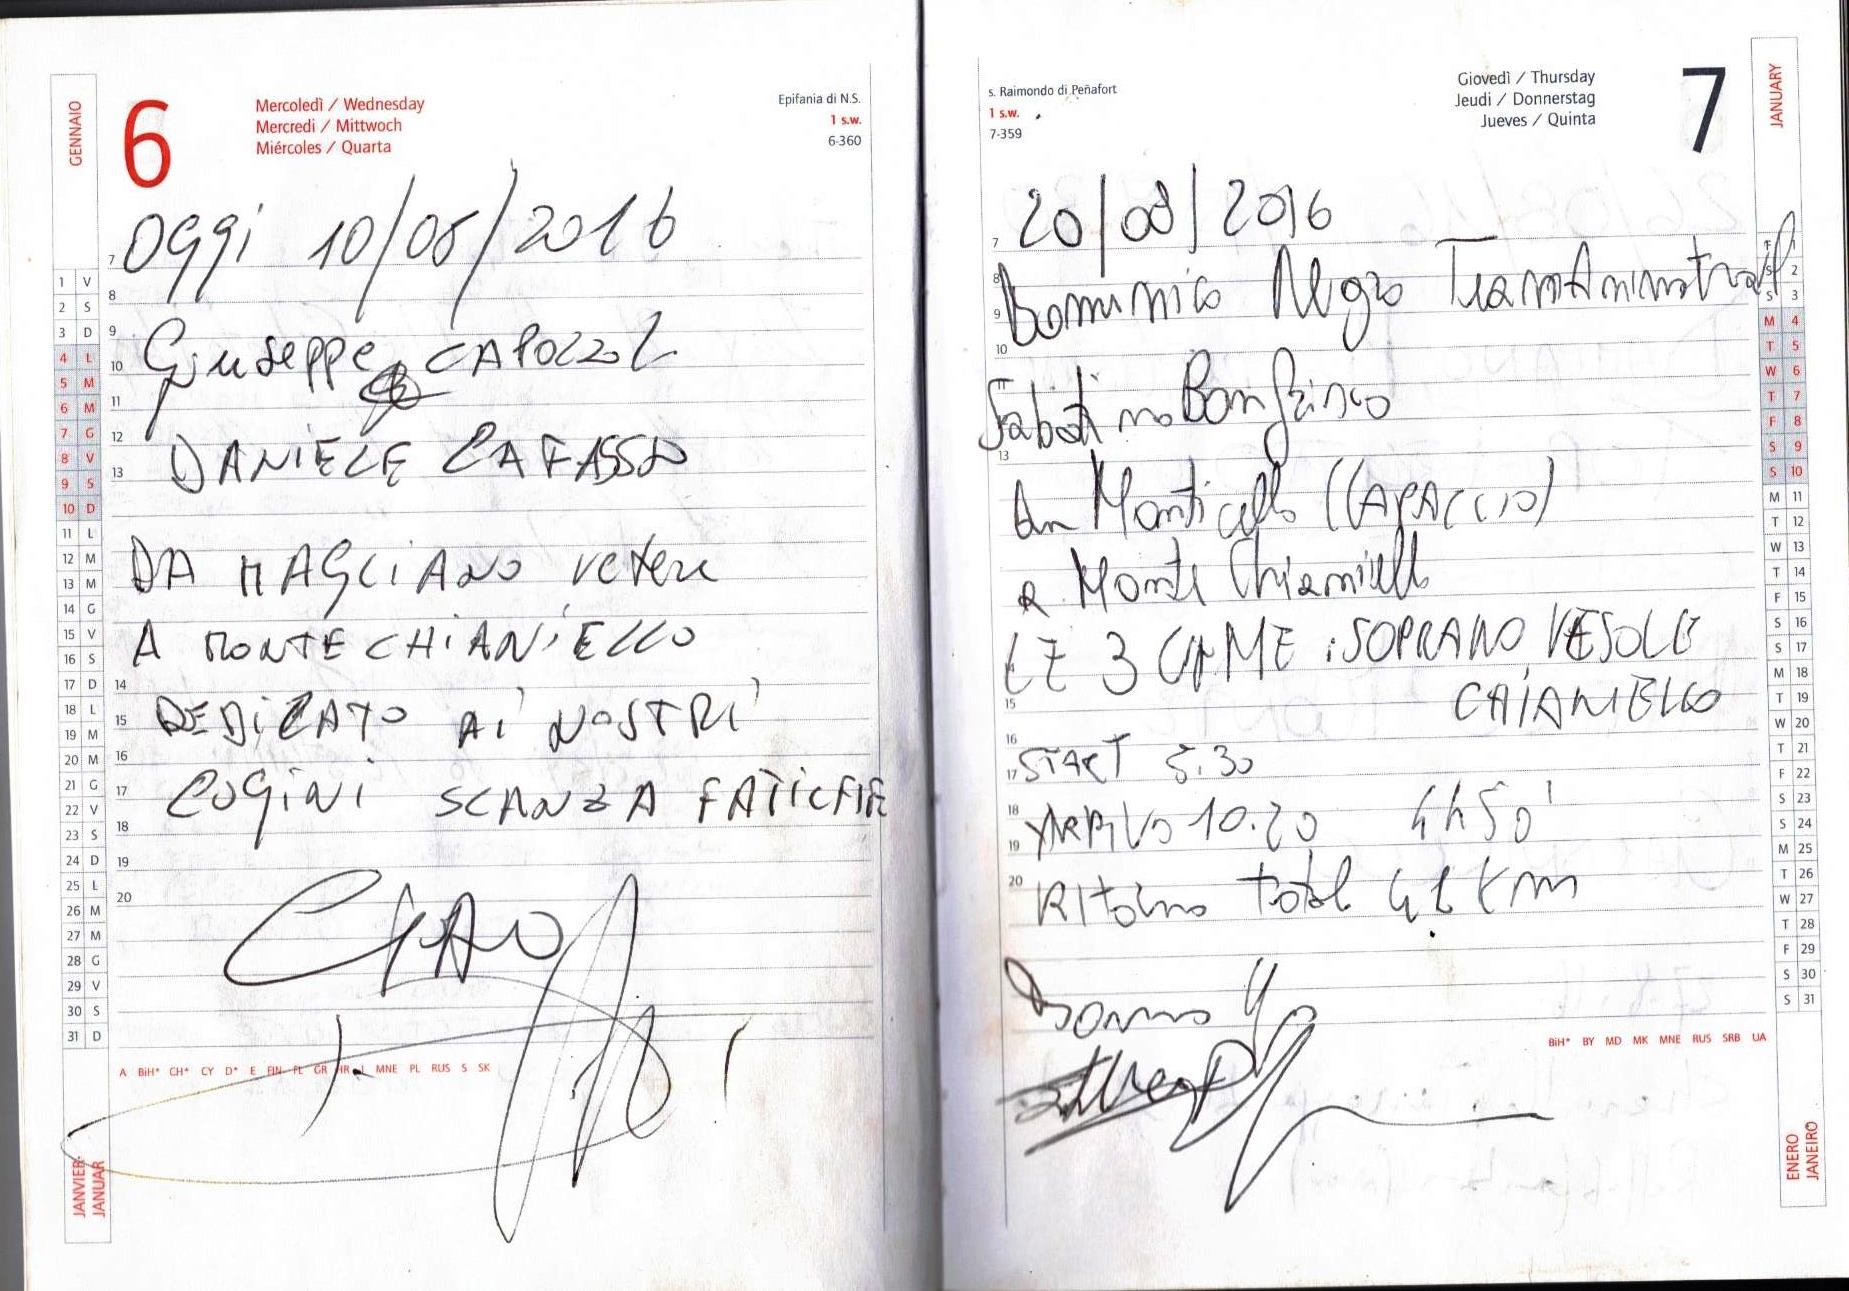 GENNAIO
6
Mercoledì / Wednesday
Mercredi / Mittwoch
Miércoles / Quarta
Epifania di N.S.
1 s.w.
6-360
Oggi 10/08/2016
Giuseppe CAPOZZOLI
DANIELE CAFASSO
DA MAGLIANO vetere
A MONTE CHIANIELLO
DEDICATO Ai NOSTRI
CUGINI SCANZA FATICHE
CIAO
7
8
9
10
11
12
13
14
15
16
17
18
19
20
1 V
2 S
3 D
4 L
5 M
6 M
7 G
8 V
9 S
10 D
11 L
12 M
13 M
14 G
15 V
16 S
17 D
18 L
19 M
20 M
21 G
22 V
23 S
24 D
25 L
26 M
27 M
28 G
29 V
30 S
31 D
A BiH* CH* CY D* E FIN FL GR HR I MNE PL RUS S SK
JANVIER
JANUAR
s. Raimondo di Peñafort
1 s.w.
7-359
Giovedì / Thursday
Jeudi / Donnerstag
Jueves / Quinta
7
JANUARY
20/08/2016
Domenico Nigro
Sabatino Bonfrisco
Da Monticello (CAPACCIO)
a Monte Chianiello
LE 3 CIME : SOPRANO VESOLE
CHIANIELLO
START 5.30
ARRIVO 10.20 4h50'
RItorno total 42 Km
7
8
9
10
11
13
14
15
16
17
18
19
20
F 1
S 2
S 3
M 4
T 5
W 6
T 7
F 8
S 9
S 10
M 11
T 12
W 13
T 14
F 15
S 16
S 17
M 18
T 19
W 20
T 21
F 22
S 23
S 24
M 25
T 26
W 27
T 28
F 29
S 30
S 31
BiH* BY MD MK MNE RUS SRB UA
ENERO
JANEIRO